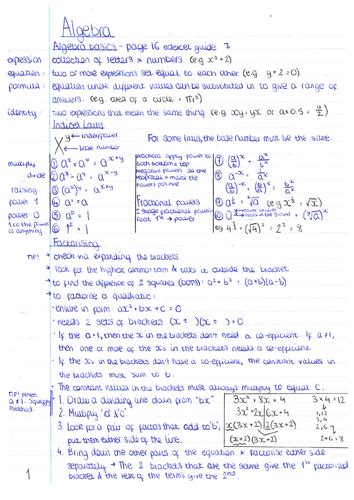 Algebra
Algebra basics - page 16 edexcel guide
expression collection of letters & numbers (e.g. x² + 2)
equation: two or more expressions set equal to each other (e.g. y + 2 = 0)
formula: equation where different values can be substituted in to give a range of
answers. (e.g. area of a circle = πr²)
identity two expressions that mean the same thing (e.g. xy = yx or a × 0.5 = a/2)
Indices Laws
x^y index/power
base number
For some laws, the base number must be the same.
multiply ① a^x × a^y = a^(x+y)
divide ② a^x ÷ a^y = a^(x-y)
raising ③ (a^x)^y = a^(x×y)
power 1 ④ a¹ = a
power 0 ⑤ a⁰ = 1
1 to the power of anything ⑥ 1^x = 1
fractions apply power to both bottom & top
negative powers do the reciprocal & make the powers positive
Fractional powers
2 stage fractional powers
root 1st → power
⑦ (a/b)^x = a^x/b^x
Factorising
TIP! → check via expanding the brackets
→ look for the highest common term & take it outside the bracket
→ to find the difference of 2 squares (DOTS):
→ to factorise a quadratic:
• ensure in form: ax² + bx + c = 0
• needs 2 sets of brackets (x ± )(x ± ) = 0
• If the a = 1, then the x in the brackets don't need a co-efficient. If a≠1,
then one or more of the xs in the brackets needs a co-efficient
• If the xs in the brackets don't have a co-efficient, the constant values in
the brackets must sum to b.
• The constant values in the brackets must always multiply to equal c.
TIP! when a≠1 method
1. Draw a dividing line down from "bx"
2. Multiply 'a' & 'c'
3. Look for a pair of factors that add to 'b',
put them either side of the line.
4. Bring down the other parts of the equation & factorise either side
separately → The 2 brackets that are the same give the 1st factorised
bracket & the rest of the terms give the 2nd.
3x² + 8x + 4
3x² + 2x | 6x + 4
x(3x+2) | 2(3x+2)
(x+2)(3x+2)
3 × 4 = 12
1,12
3,4
2,6
2+6=8
1